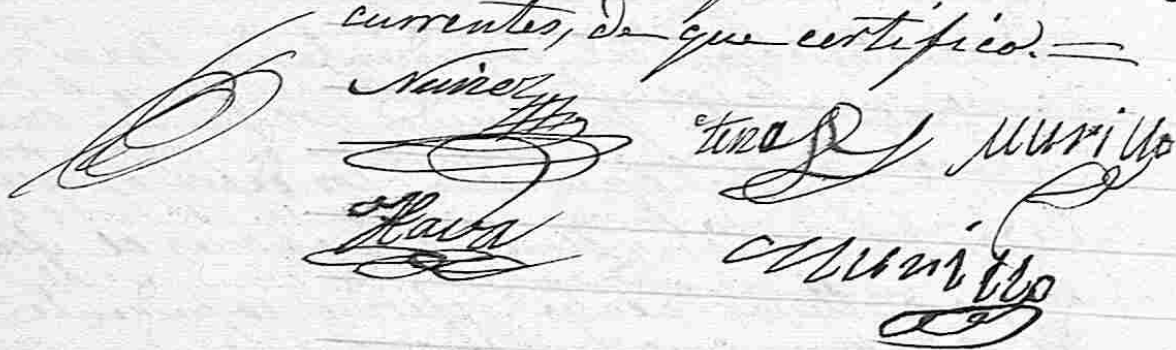 currentes, de que certifico.=
Nuñez Tena Murillo
Nava Murillo